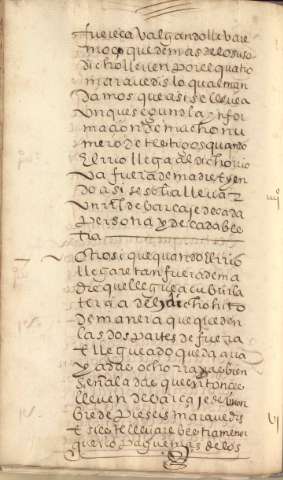 fuere cavalgando lleve
mos que demas de lo suso
dicho lleven por el quatro
maravedis lo qual man
damos que asi se lleve a
unque segun la ynfor
maçion de mucho nu
mero de testigos quando
el rrio llega al dicho
va fuera de madre y en
do asi se solia llevar
un rreal de barcaje de cada
persona y de cada bes
tia
Otrosi que quando el rrio
llegare tan fuera de ma
dre que llegue a cubrir la
terçia del dicho hito
de manera que queden
las dos partes de fuera
e llegado queda a la
señalada que entonçes
lleven de barcaje de
bre de pie seis maravedis
e si
que no pague mas de los
iiij
vj